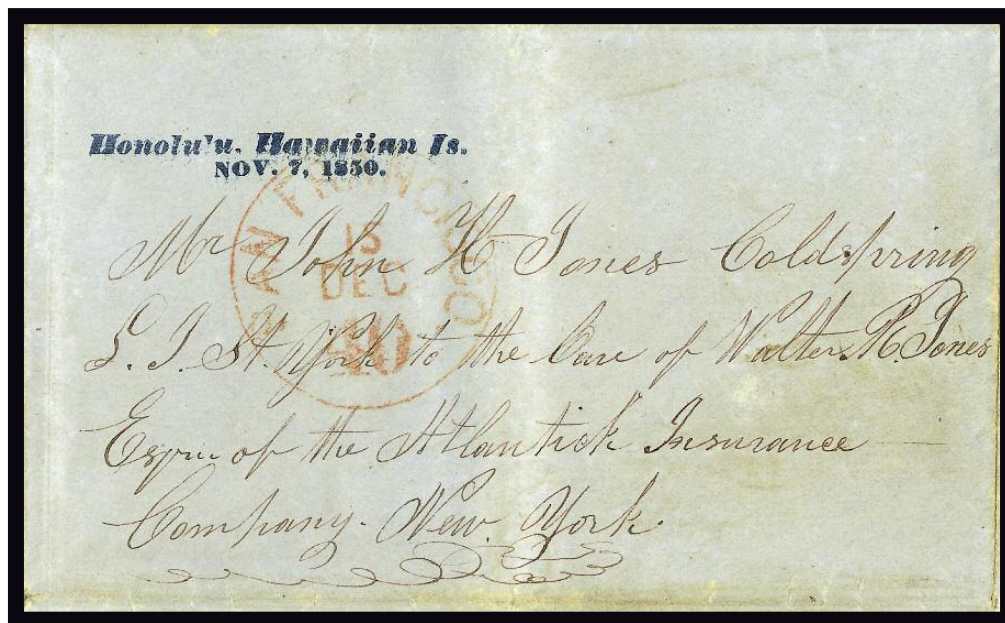 Honolu'u, Hawaiian Is.
NOV. 7, 1850.
SAN FRANCISCO
15
DEC
Mr John H Jones Coldspring
L. I. N. York to the Care of Walter R Jones
Esqr of the Atlantick Insurance
Company. New. York.